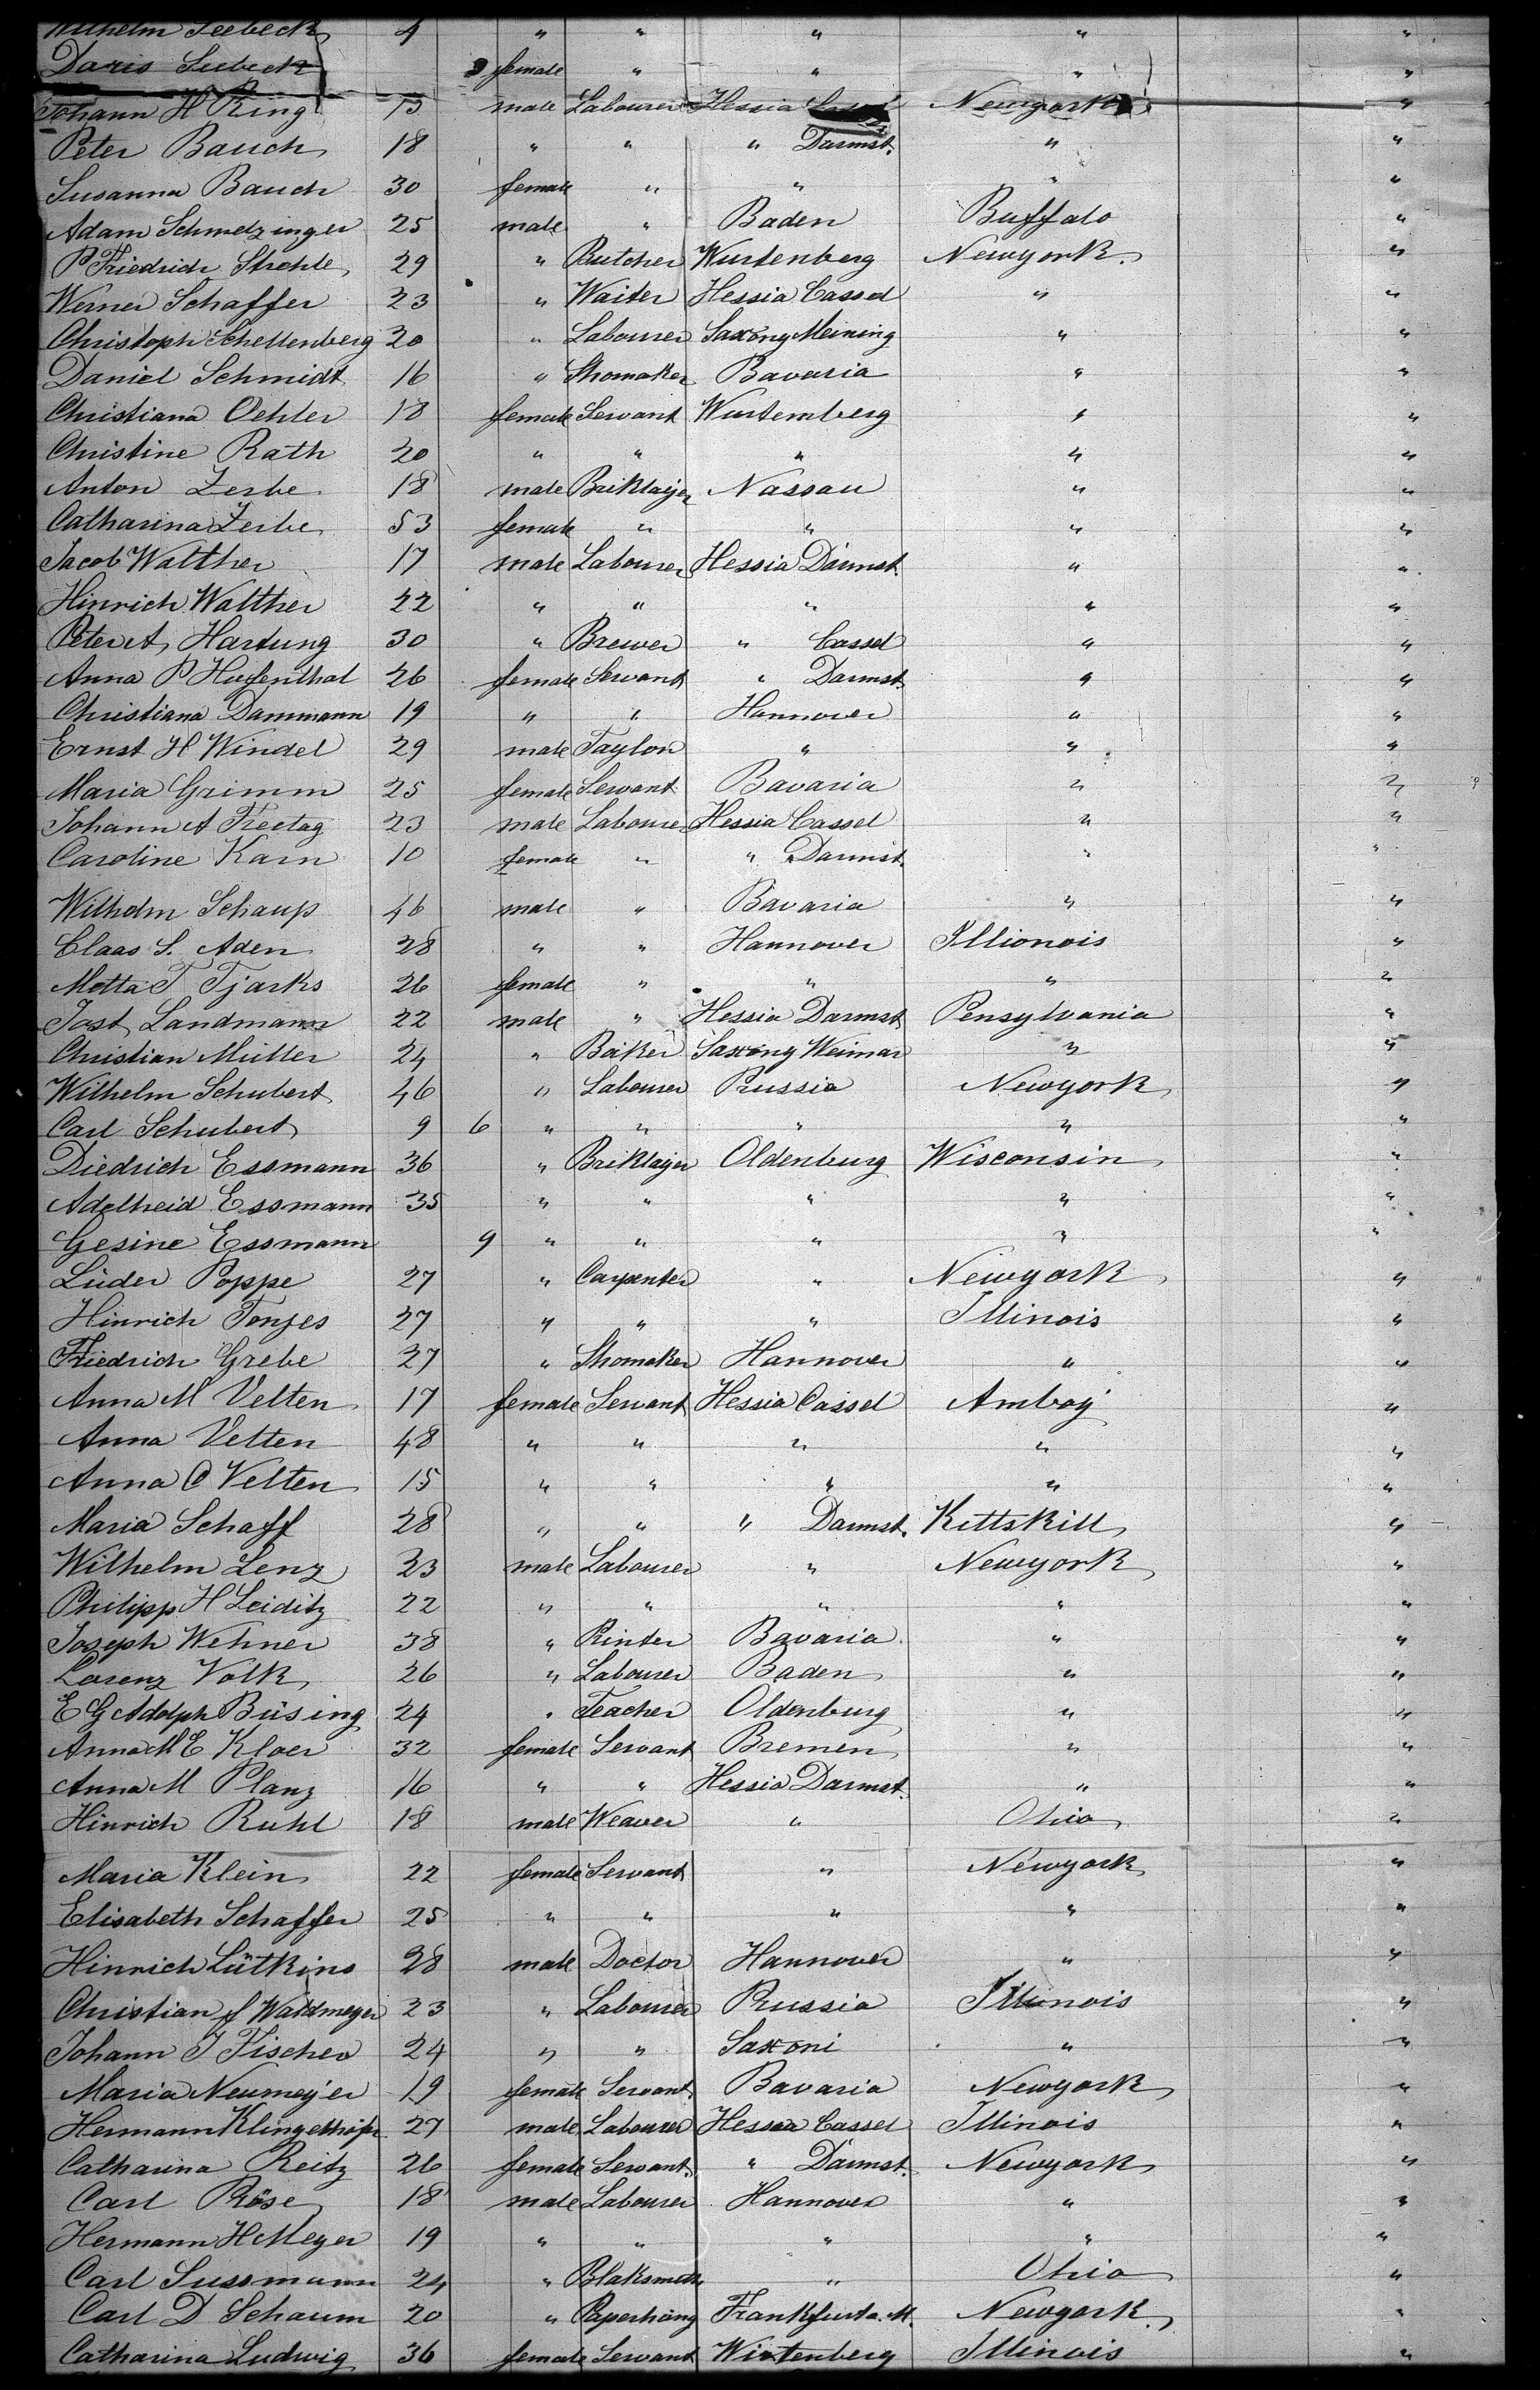 Wilhelm Seebeck 4 " " " " "
Doris Seebeck 3 female " " " "
Johann H Ring 13 male Labourer Hessia Newyork "
Peter Bauch 18 " " " Darmst. " "
Susanna Bauch 30 female " " " "
Adam Schmetzinger 25 male " Baden Buffalo "
P Friedrich Strohle 29 " Butcher Wurtenberg Newyork. "
Werner Schaffer 23 " Waiter Hessia Cassel " "
Christoph Schellenberg 20 " Labourer Saxony Meining " "
Daniel Schmidt 16 " Shomaker Bavaria " "
Christiana Oehler 18 female Servant Wurtemberg " "
Christine Rath 20 " " " " "
Anton Zerbe 18 male Briklayer Nassau " "
Catharina Zerbe 53 female " " " "
Jacob Walther 17 male Labourer Hessia Darmst. " "
Hinrich Walther 22 " " " " "
Peter A Hartung 30 " Brewer " Cassel " "
Anna P Hufenthal 26 female Servant " Darmst. " "
Christiana Dammann 19 " " Hannover " "
Ernst H Windel 29 male Taylor " " "
Maria Grimm 25 female Servant Bavaria " "
Johann A Freetag 23 male Labourer Hessia Cassel " "
Caroline Karn 10 female " " Darmst. " "
Wilhelm Schaup 46 male " Bavaria " "
Claas S. Aden 28 " " Hannover Illionois "
Metta T Tjarks 26 female " " " "
Jost Landmann 22 male " Hessia Darmst. Pensylvania "
Christian Müller 24 " Baker Saxony Weimar " "
Wilhelm Schubert 46 " Labourer Prussia Newyork "
Carl Schubert 9 6 " " " " "
Diedrich Essmann 36 " Briklayer Oldenburg Wisconsin "
Adelheid Essmann 35 " " " " "
Gesine Essmann 9 " " " " "
Lüder Poppe 27 " Carpenter " Newyork "
Hinrich Tonjes 27 " " " Illinois "
Friedrich Grebe 27 " Shomaker Hannover " "
Anna M Velten 17 female Servant Hessia Cassel Amboy "
Anna Velten 48 " " " " "
Anna C Velten 15 " " " " "
Maria Schaff 28 " " " Darmst. Kettskill "
Wilhelm Lenz 23 male Labourer " Newyork "
Philipp H Leiditz 22 " " " " "
Joseph Wehner 38 " Printer Bavaria " "
Lorenz Volk 26 " Labourer Baden " "
E G Adolph Büsing 24 " Teacher Oldenburg " "
Anna M E Kloer 32 female Servant Bremen " "
Anna M Planz 16 " " Hessia Darmst. " "
Hinrich Ruhl 18 male Weaver " Ohio "
Maria Klein 22 female Servant " Newyork "
Elisabeth Schaffer 25 " " " " "
Hinrich Lütkins 28 male Doctor Hannover " "
Christian f Waldmeyer 23 " Labourer Prussia Illinois "
Johann J Fischer 24 " " Saxoni " "
Maria Neumeyer 19 female Servant Bavaria Newyork "
Hermann 27 male Labourer Hessia Cassel Illinois "
Catharina Reitz 26 female Servant " Darmst. Newyork "
Carl Röse 18 male Labourer Hannover " "
Hermann H Meyer 19 " " " " "
Carl Sussmann 24 " Blaksmith " Ohio "
Carl D Schaum 20 " Paperhang Frankfurt a. M. Newyork "
Catharina Ludwig 36 female Servant Wirtenberg Illinois "